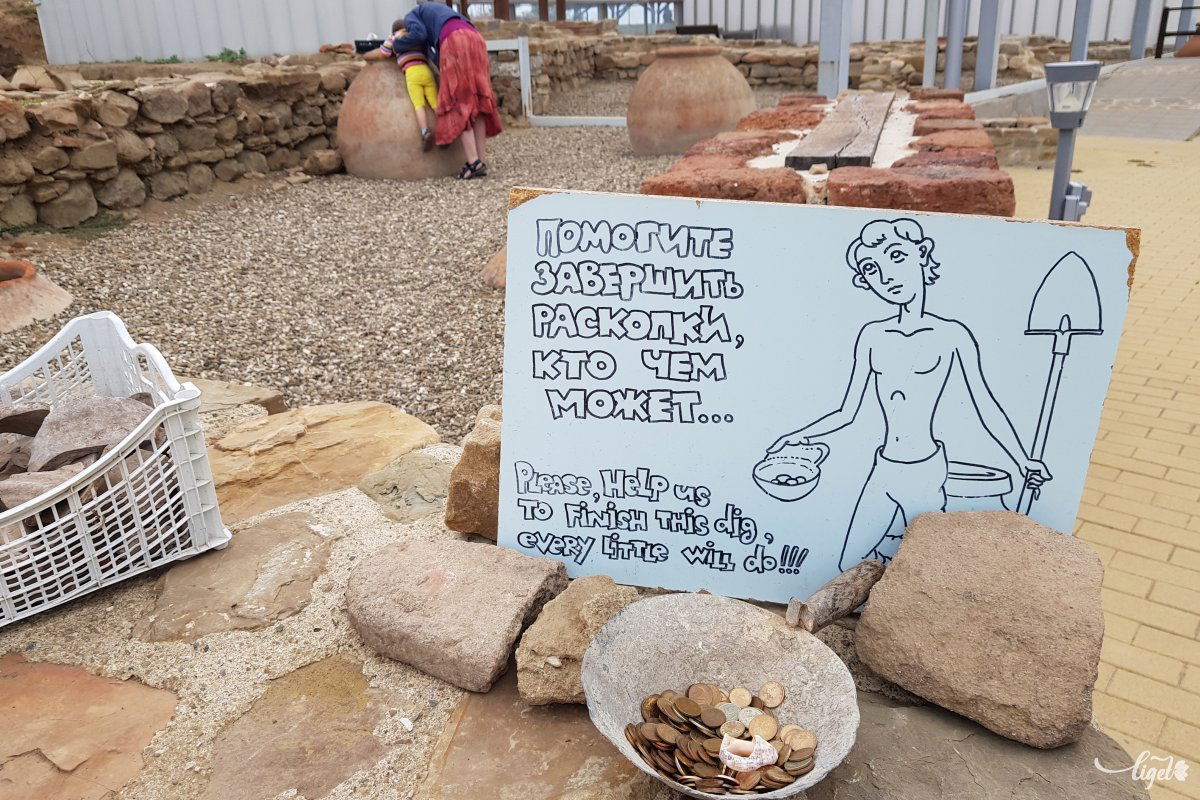 ПОМОГИТЕ
ЗАВЕРШИТЬ
РАСКОПКИ,
КТО ЧЕМ
МОЖЕТ...
Please, Help us
To finish this dig,
every little will do!!!
ligel